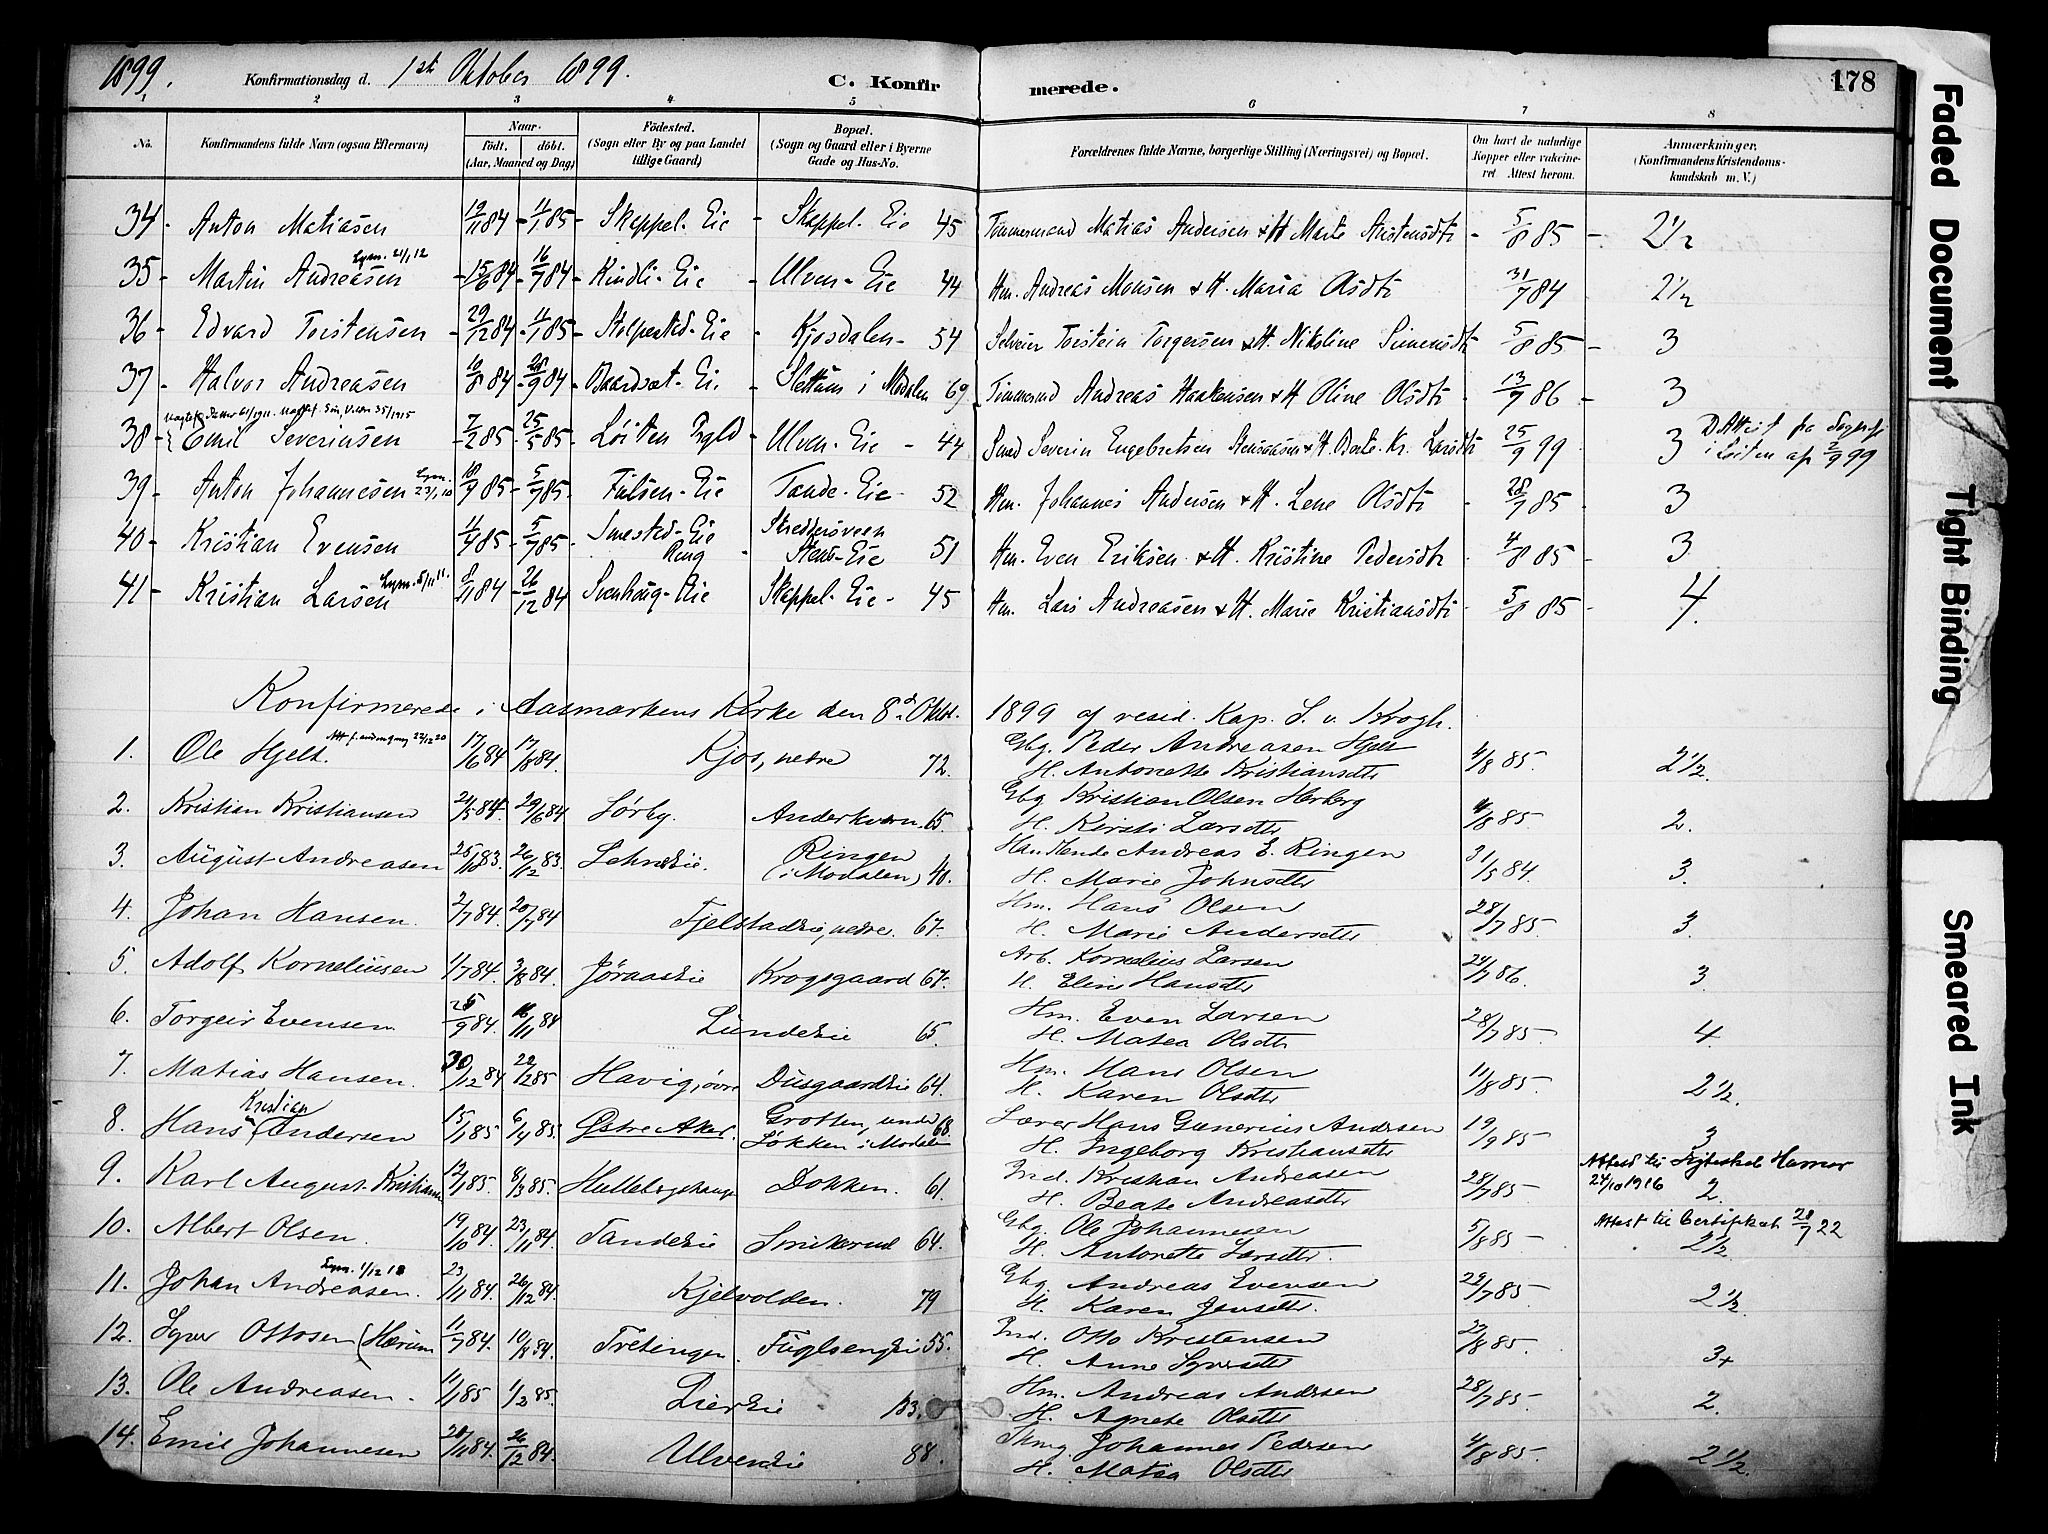 1899. Konfirmationsdag d. 1ste Oktober 1899. C. Konfir merede. 178
1 2 3 4 5 6 7 8
No. Konfirmandens fulde Navn (ogsaa Efternavn) Naar födt. döbt. (Aar, Maaned og Dag) Födested. (Sogn eller By og paa Landet tillige Gaard) Bopæl. (Sogn og Gaard eller i Byerne Gade og Hus-No. Forældrenes fulde Navne, borgerlige Stilling (Næringsvei) og Bopæl. Om havt de naturlige Kopper eller vakcineret. Attest herom. Anmærkninger. (Konfirmandens Kristendomskundskab m. V.)
34 - Anton Matiasen 19/11 84 - 4/1 85 - Skappel-Eie - Skappel-Eie 45 Tømmermand Matias Andersen & H Marte Aistensdtr - 5/8 85 - 2 1/2
Lysn. 21/1 12
35 - Martin Andreasen - 15/6 84 - 16/7 84 - Kindli-Eie - Ulven-Eie 44 Hm. Andreas Monsen & H. Maria Olsdtr 31/7 84 2 1/2
36 - Edvard Torstensen - 29/12 84 - 4/1 85 - Stolpestad-Eie - Kjosdalen - 54 Selveier Torstein Torgersen & H. Nikoline Simensdtr 5/8 85 - 3
37 - Halvor Andreasen 10/8 84 - 28/9 84 - Baardset-Eie - Slettum i Modalen 69 Tømmermand Andreas Haakensen & H Oline Olsdtr - 13/7 86 - 3
38 - Emil Severinsen 7/2 85 - 25/5 85 - Løiten Prgld - Ulven-Eie - 44 Smed Severin Engebretsen Stensaasen & H. Berte Kr. Larsdtr 25/9 99 3 D. Attest fra Sogepr i Løiten af 2/9 99
39 - Anton Johannesen Lysn. 23/1 10 18/7 85 - 5/7 85 - Finsen-Eie Tande-Eie - 52 Hm. Johannes Andersen & H. Lene Olsdtr - 28/7 85 - 3
40 - Kristian Evensen 4/4 85 - 5/7 85 - Smestad-Eie Ring - Skreddersveen Stens-Eie 51 Hm. Even Eriksen & H. Kristine Pedersdtr 4/8 85 - 3
41 - Kristian Larsen Lysn. 5/11 11. 8/11 84 - 26/12 84 Svenhaug-Eie Skappel-Eie - 45 Hm. Lars Andreasen & H. Marie Kristiansdtr - 5/8 85 - 4.
Konfirmerede i Aasmarkens Kirke den 8de Oktbr. 1899 af resid. Kap. S. v. Krogh.
1. Ole Hjelt. 17/6 84 17/8 84. Kjos, nedre 72. Gbg. Peder Andreasen Hjelt 4/8 85. 2 1/2.
H. Antonette Kristiansdtr
2. Kristian Kristiansen 24/5 84. 29/6 84 Lørby. Anderkværn. 65. Gbg Kristian Olsen Herberg 4/8 85. 2.
H. Kirsti Larsdtr
3. August Andreasen 25/10 83. 26/12 83. Lehneeie. Ringen (i Modalen) 40. Handlende Andreas E. Ringen 31/5 84. 3.
H. Marie Johnsdtr
4. Johan Hansen. 2/7 84. 20/7 84 Fjelstadeie, nedre. 67. Hm. Hans Olsen 28/7 85. 3.
H. Marie Andersdtr
5. Adolf Korneliussen 1/7 84. 3/8 84. Jøraaseie Krogsgaard 67. Arb. Kornelius Larsen 24/7 86. 3.
H. Eline Hansdtr
6. Torgeir Evensen 25/9 84. 16/11 84 Lundeeie 65. Hm. Even Larsen 28/7 85. 4.
H. Matea Olsdtr
7. Matias Hansen. 30/12 84 22/2 85 Havig, øvre Dusgaardeie 64. Hm. Hans Olsen 11/8 85. 2 1/2.
H. Karen Olsdtr
8. Hans Kristian Andersen 15/1 85 6/4 85. Østre Aker. Grotten, under Løkken i Modalen 68. Lærer Hans Gunerius Andersen 19/9 85. 3
H. Ingeborg Kristiansdtr
9. Karl August Kristiansen 12/1 85. 8/3 85. Hulleberghaugen Dokken. 61. Ind. Kristian Andreasen 28/7 85. 24/10 1916 2.
H. Beate Andreasdtr
10. Albert Olsen. 19/10 84. 23/11 84. Tandeeie Smikerud 64. Gbg. Ole Johannesen 5/8 85. Attest til Certifikat 28/7 22
H. Antonette Larsdtr. 2 1/2
11. Johan Andreasen. Lysn. 1/12 18 23/11 84. 26/12 84. Kjelvolden. 79 Gbg. Andreas Evensen 29/7 85 2 1/2
H. Karen Jensdtr.
12. Syver Ottosen (Hærum 11/7 84. 10/8 84. Tretingen. Fuglsengeie 55. Ind. Otto Kristensen 27/8 85. 3+
H. Anne Syversdtr
13. Ole Andreasen. 11/1 85 1/2 85. Liereie 83. Hm. Andreas Andersen 28/7 85. 2.
H. Agnete Olsdtr
14. Emil Johannesen 20/11 84. 26/12 84. Ulveneie 88. Johannes Pedersen 4/8 85. 2 1/2.
H. Matea Olsdtr
Faded Document
Tight Binding
Smeared Ink